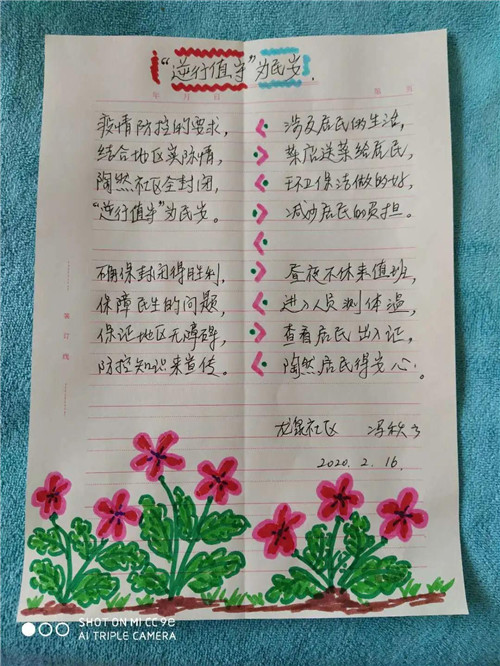 "逆行值守"为民安.
年 月 日
第 页
疫情防控的要求,
结合地区实际情,
陶然社区全封闭,
"逆行值守"为民安。
涉及居民的生活,
菜店送菜给居民,
环卫保洁做的好,
减少居民的负担.
确保封闭得胜利,
保障民生的问题,
保证地区无障碍,
防控知识来宣传.
昼夜不休来值班,
进入人员测体温,
查看居民出入证,
陶然居民得安心.
装订线
龙泉社区 冯秋
2020.2.16
SHOT ON MI CC 9e
AI TRIPLE CAMERA